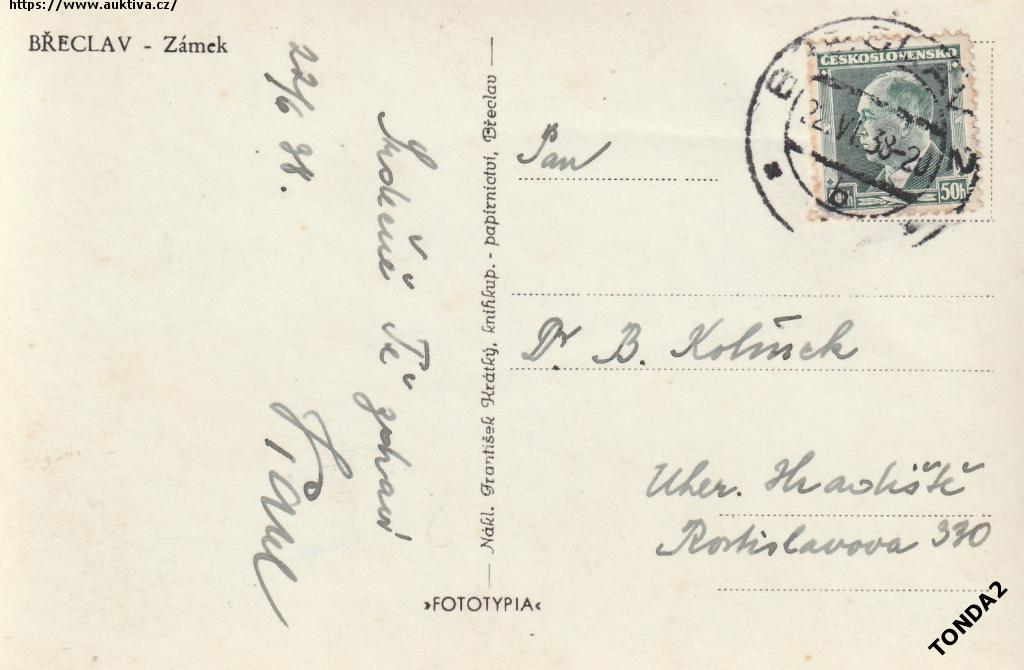 https://www.auktiva.cz/
BŘECLAV - Zámek
22/6 38.
Srdečně Tě zdraví
Nákl. František Krátký, knihkup. - papírnictví, Břeclav
»FOTOTYPIA«
ČESKOSLOVENSKO
50h
BŘECLAV 2
22.VI.38-20
Pan
Dr. B. Kolínek
Uher. Hradiště
Rostislavova 330
TONDA2